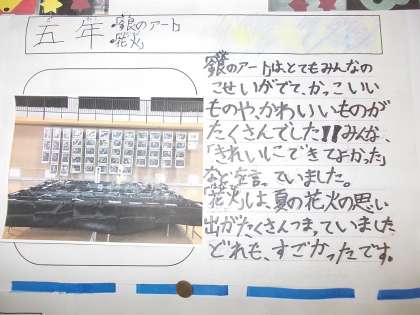 五年
・銀のアート
・花火
銀のアートは、とてもみんなの
こせいがでて、かっこいい
ものや、かわいいものが
たくさんでした!!みんな、
「きれいにできてよかった」
など言っていました。
「花火」は、夏の花火の思い
出がたくさんつまっていました
どれも、すごかったです。